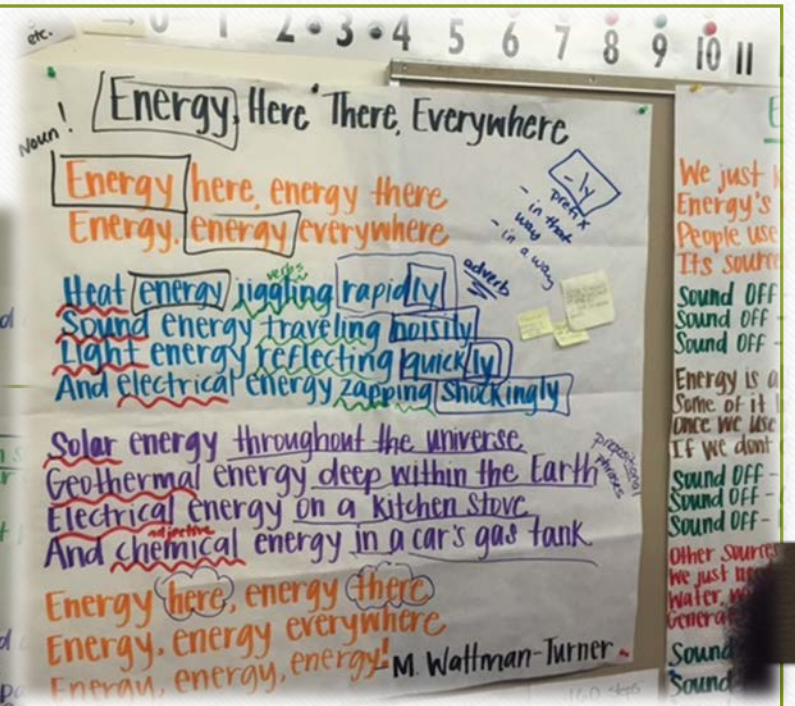 etc.
0 1 2 3 4 5 6 7 8 9 10 11
Noun!
Energy, Here, There, Everywhere
Energy here, energy there
Energy, energy everywhere
-ly
prefix
- in that way
- in a way
verbs
adverb
Heat energy jiggling rapidly
Sound energy traveling noisily
Light energy reflecting quickly
And electrical energy zapping shockingly
Solar energy throughout the universe
Geothermal energy deep within the Earth
Electrical energy on a kitchen stove
adjective
And chemical energy in a car's gas tank
prepositional phrases
Energy here, energy there
Energy, energy everywhere
Energy, energy, energy!
M. Wattman-Turner
We just
Energy's
People use
Its source
Sound OFF -
Sound OFF
Sound OFF -
Energy is a
Some of it
Once we use
If we dont
Sound OFF -
Sound OFF -
Sound OFF -
Other sources
We just
Water,
Genera
Sound
Sound